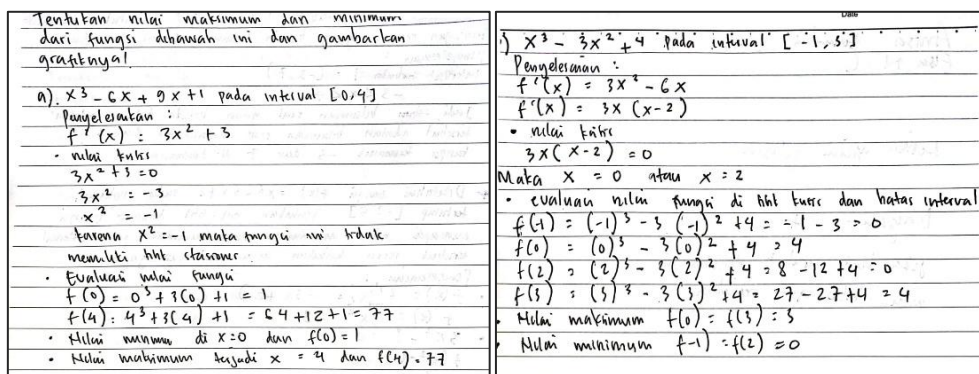 Tentukan nilai maksimum dan minimum
dari fungsi dibawah ini dan gambarkan
grafiknya!
a). x³ - 6x + 9x + 1 pada interval [0,4]
Penyelesaikan :
f'(x) : 3x² + 3
• nilai kritis
3x² + 3 = 0
3x² = -3
x² = -1
karena x² = -1 maka fungsi ini tidak
memiliki titik stasioner
• Evaluasi nilai fungsi
f(0) = 0³ + 3(0) + 1 = 1
f(4) : 4³ + 3(4) + 1 = 64 + 12 + 1 = 77
• Nilai minimum di x = 0 dan f(0) = 1
• Nilai maksimum terjadi x = 4 dan f(4) = 77
Date
) x³ - 3x² + 4 pada interval [-1, 3]
Penyelesaian :
f'(x) = 3x² - 6x
f'(x) = 3x (x-2)
• nilai kritis
3x (x-2) = 0
Maka x = 0 atau x = 2
• evaluasi nilai fungsi di titik kritis dan batas interval
f(-1) = (-1)³ - 3 (-1)² + 4 = -1 - 3 = 0
f(0) = (0)³ - 3(0)² + 4 = 4
f(2) = (2)³ - 3(2)² + 4 = 8 - 12 + 4 = 0
f(3) = (3)³ - 3(3)² + 4 = 27 - 27 + 4 = 4
• Nilai maksimum f(0) = f(3) = 3
• Nilai minimum f-1) = f(2) = 0